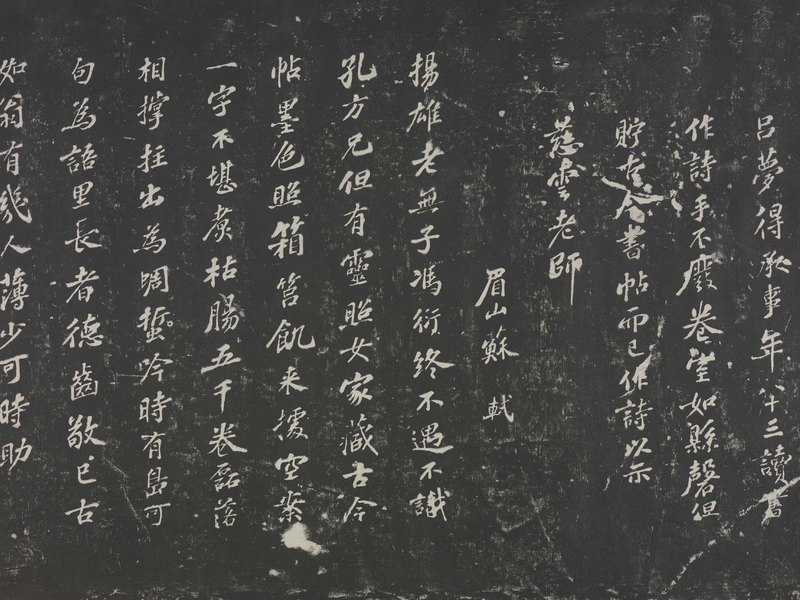 呂夢得承事年八十三讀書
作詩手不廢卷室如縣磬但
貯古今書帖而已作詩以示
慈雲老師
眉山蘇軾
揚雄老無子馮衍終不遇不識
孔方兄但有靈照女家藏古今
帖墨色照箱筥飢來據空案
一字不堪煑枯腸五千卷磊落
相撑拄出為蜩蛩吟時有島可
句為語里長者德齒敬已古
如翁有幾人薄少可時助